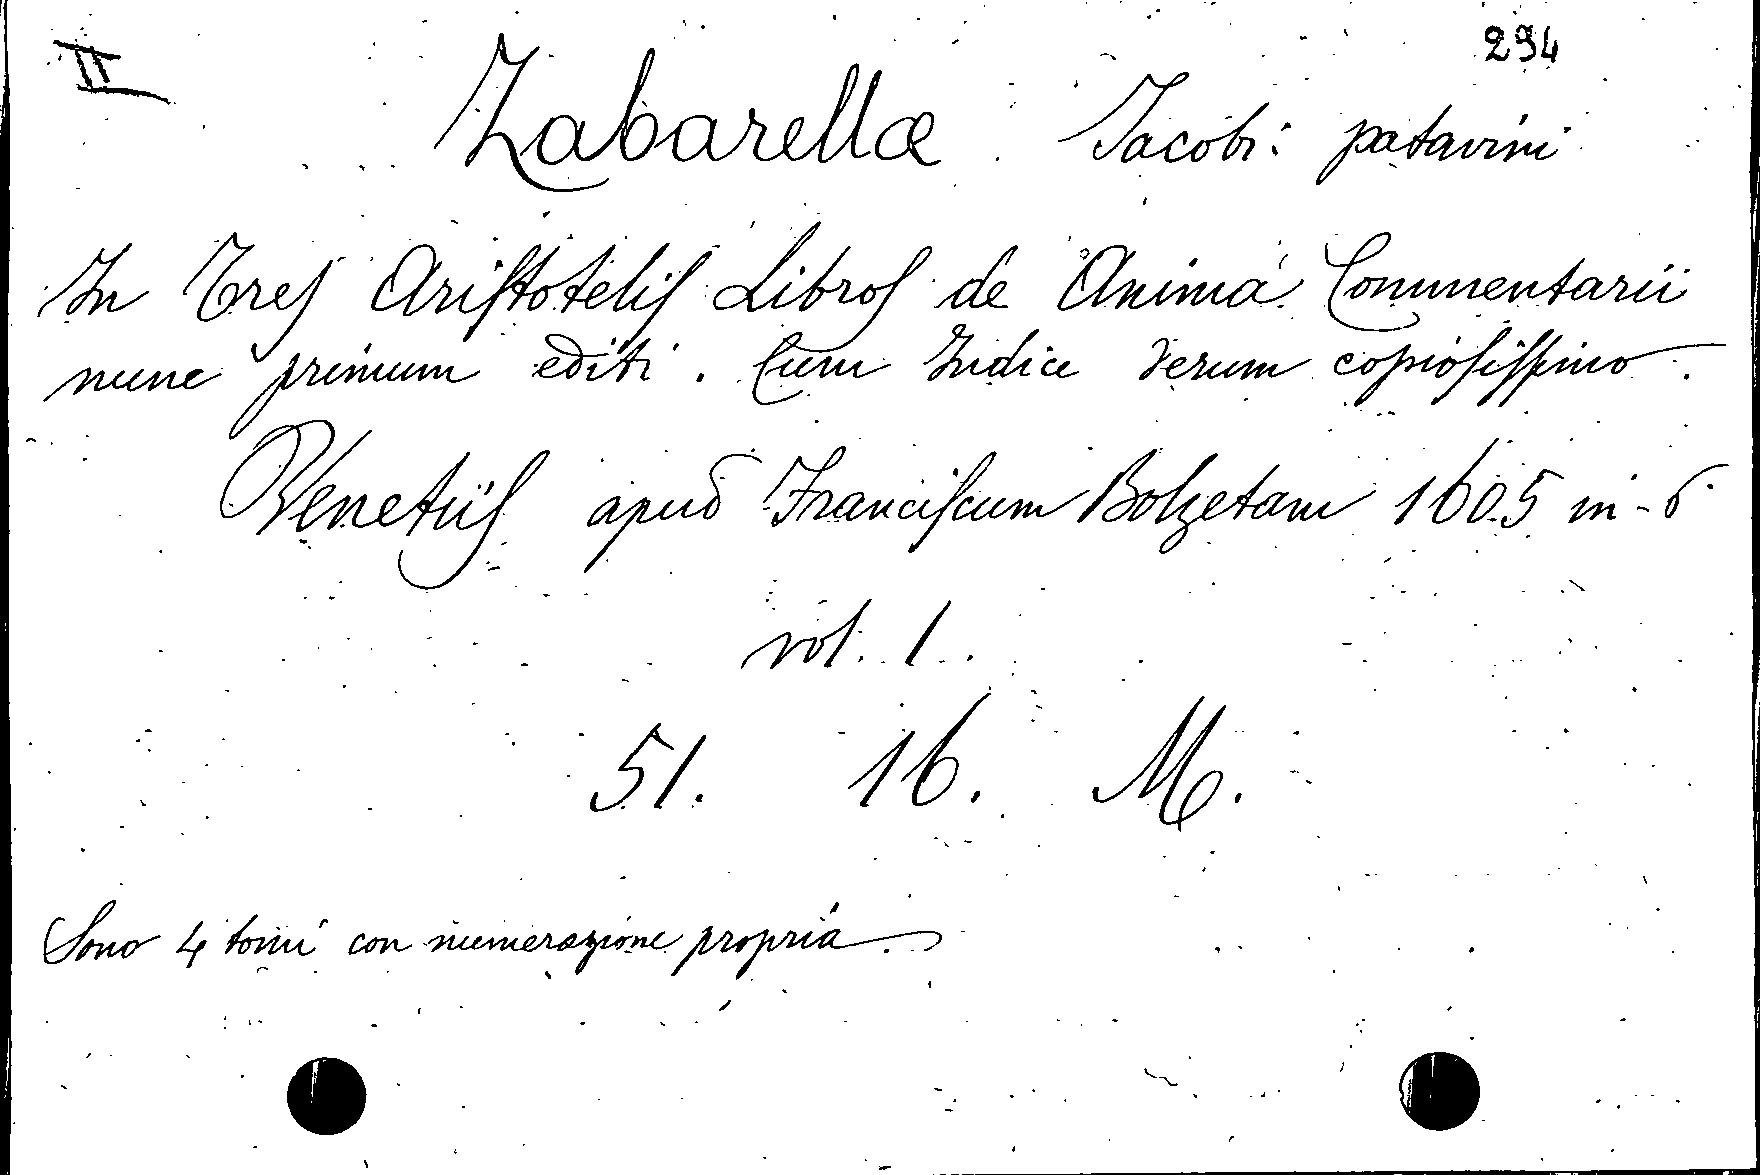 II
294
Zabarellæ Jacobi: patavini
In Treſ Ariſtoteliſ Libroſ de Anima Commentarii
nunc primum editi. Cum Indice rerum copioſiſſimo.
Venetiiſ apud Franciſcum Bolzetam 1605 in-6
vol. 1.
51. 16. M.
Sono 4 tomi con numerazione propria.